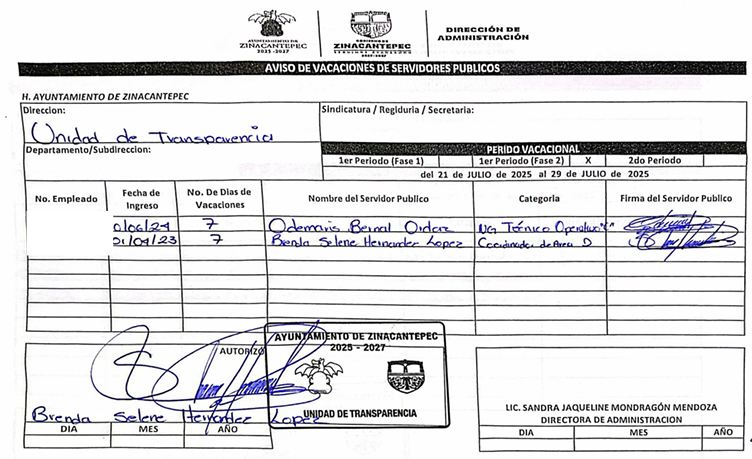 AYUNTAMIENTO DE
ZINACANTEPEC
2025 - 2027
ZINACANTEPEC
DIRECCIÓN DE
ADMINISTRACIÓN
AVISO DE VACACIONES DE SERVIDORES PUBLICOS
H. AYUNTAMIENTO DE ZINACANTEPEC
Direccion:
Sindicatura / Regiduria / Secretaria:
Unidad de Transparencia
Departamento/Subdireccion:
PERIDO VACACIONAL
1er Periodo (Fase 1) 1er Periodo (Fase 2) X 2do Periodo
del 21 de JULIO de 2025 al 29 de JULIO de 2025
No. Empleado Fecha de Ingreso No. De Dias de Vacaciones Nombre del Servidor Publico Categoria Firma del Servidor Publico
7 Odemaris Bernal
01/04/23 7 Brenda Selene Hernandez Lopez Coordinador de Area D
AUTORIZÓ
AYUNTAMIENTO DE ZINACANTEPEC
2025 - 2027
UNIDAD DE TRANSPARENCIA
Brenda Selene Hernandez Lopez
DIA MES AÑO
LIC. SANDRA JAQUELINE MONDRAGÓN MENDOZA
DIRECTORA DE ADMINISTRACION
DIA MES AÑO